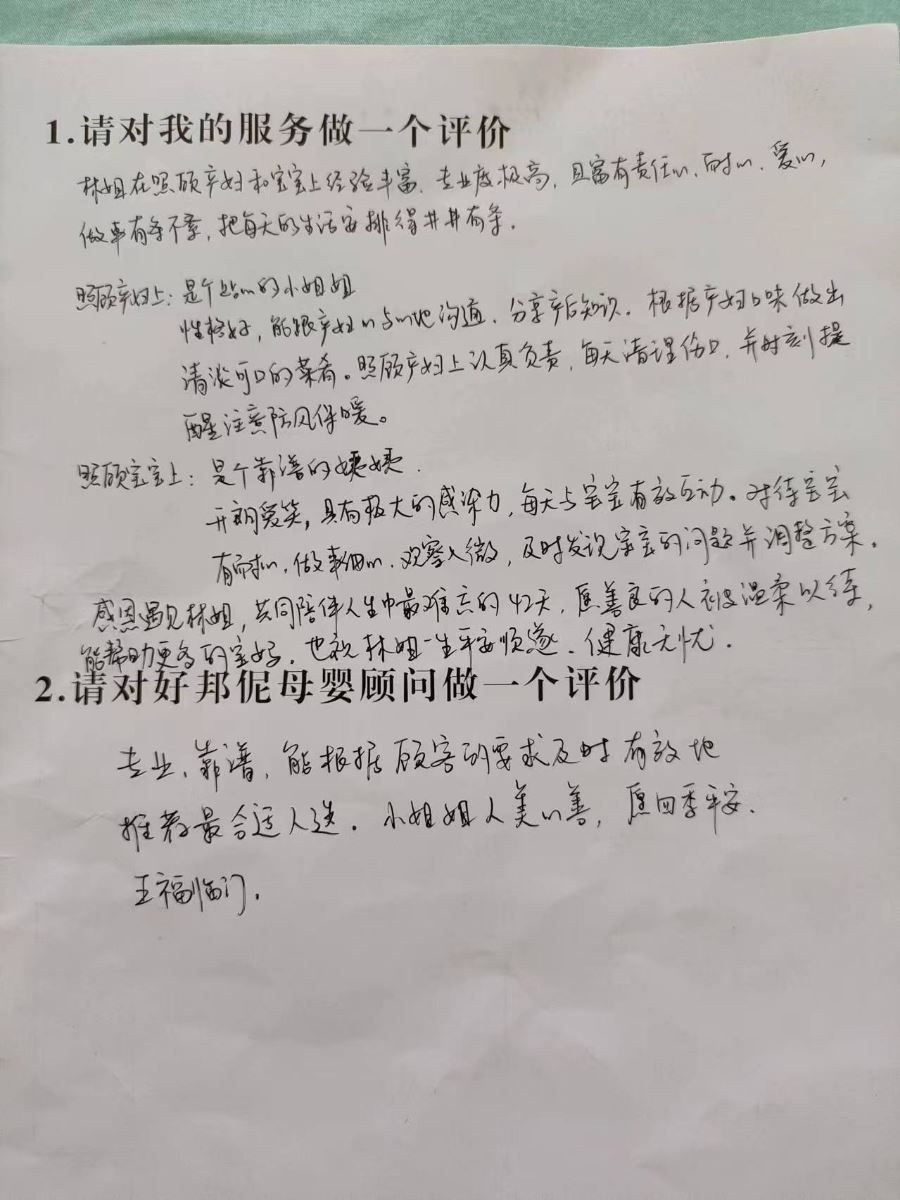 1.请对我的服务做一个评价
林姐在照顾产妇和宝宝上经验丰富、专业度极高，且富有责任心、耐心、爱心，
做事有条不紊，把每天的生活安排得井井有条。
照顾产妇上：是个贴心的小姐姐
性格好，能跟产妇心与心地沟通、分享产后知识．根据产妇口味做出
清淡可口的菜肴。照顾产妇上认真负责，每天清理伤口，并时刻提
醒注意防风保暖。
照顾宝宝上：是个靠谱的姨姨．
开朗爱笑，具有极大的感染力，每天与宝宝有效互动。对待宝宝
有耐心，做事细心、观察入微，及时发现宝宝的问题并调整方案。
感恩遇见林姐，共同陪伴人生中最难忘的42天，愿善良的人被温柔以待，
能帮助更多的宝妈．也祝林姐一生平安顺遂、健康无忧．
2.请对好邦伲母婴顾问做一个评价
专业、靠谱，能根据顾客的要求及时有效地
推荐最合适人选．小姐姐人美心善，愿四季平安．
五福临门．